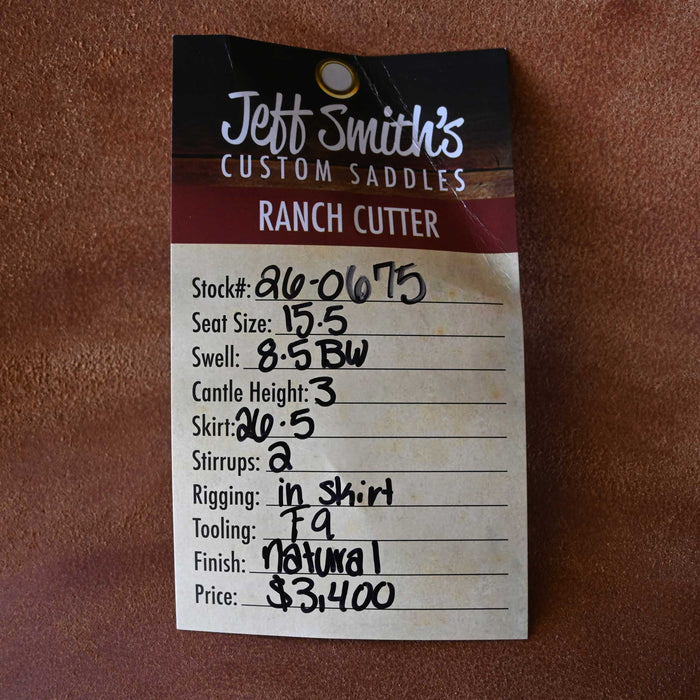 Jeff Smith's
CUSTOM SADDLES
RANCH CUTTER
Stock#: 26-0675
Seat Size: 15.5
Swell: 8.5 BW
Cantle Height: 3
Skirt: 26.5
Stirrups: 2
Rigging: in skirt
Tooling: F9
Finish: natural
Price: $3,400